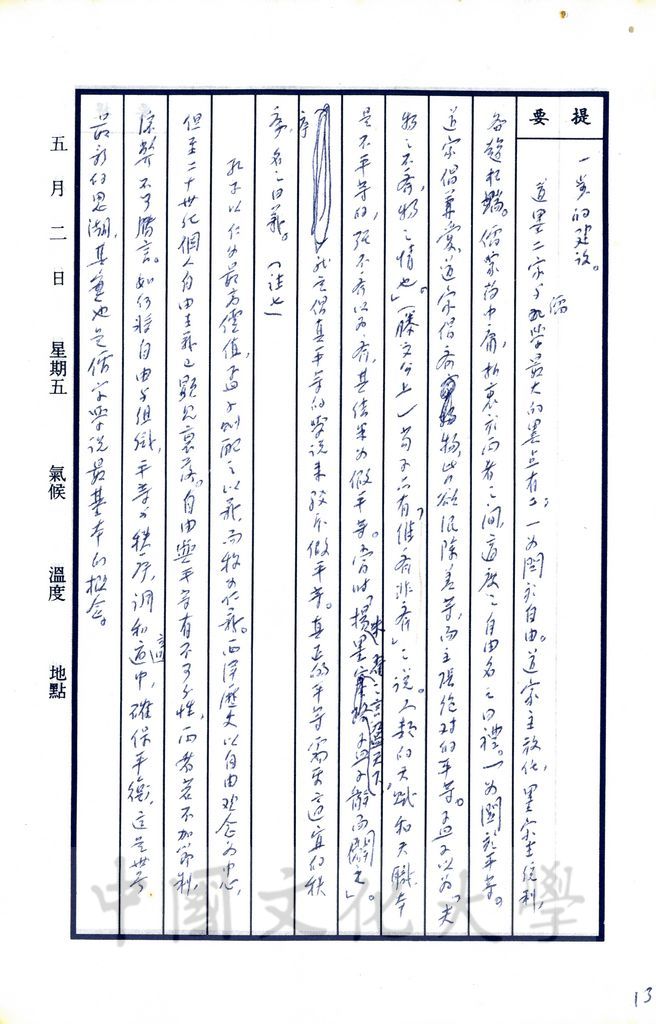 提要
一步的建設。
道墨二家与儒學最大的異点有二。一为關於自由。道家主放任，墨家主統制，
各趨極端。儒家尚中庸，折衷於两者之間，適度之自由名之曰禮。一为關於平等。
道家倡兼愛，道家倡齊物，此欲泯除差等，而主張絕对的平等。孟子以为「夫
物之不齊，物之情也」。(滕文公上)荀子亦有「維齊非齊」之說。人類的天賦和天職本
是不平等的，强不齊以为齊，其結果为假平等。當时「楊朱墨翟之言盈天下，孟子辭而闢之」。
我三倡真平等的學說来破斥假平等。真正的平等需要適宜的秩
序，名之曰義。(註七)
孔子以仁为最高價值，孟子則配之以義，而稱为仁義。西洋歷史以自由观念为中心，
但至二十世紀個人自由主義已顯見衰落。自由與平等有不可分性，两者若不加節制，
流弊不可勝言。如何將自由与組織，平等与秩序，調和適中，確保平衡，這是世界
最新的思潮，其實也是儒家學說最基本的概念。
五月二日 星期五 氣候 溫度 地點
中國文化大學
13